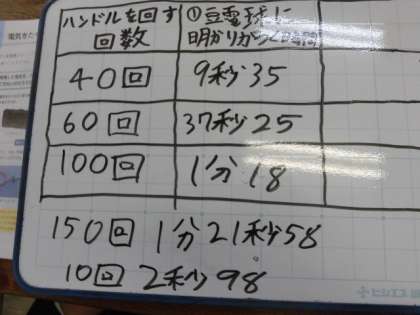 ハンドルを回す
回数
①豆電球に
明かりがつく時間
40回 9秒35
60回 37秒25
100回 1分18
150回 1分21秒58
10回 2秒98